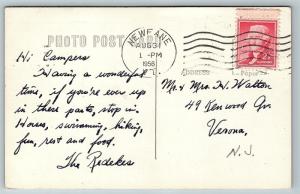 PHOTO POST CARD
NEWFANE
AUG 31
1 - PM
1956
ADDRESS
Hi Campers
Having a wonderful
time, if you're ever up
in these parts, stop in.
Horses, swimming, hiking,
fun, rest and food.
The Redekes
Mr & Mrs H. Walton
49 Kenwood Av.
Verona,
N.J.